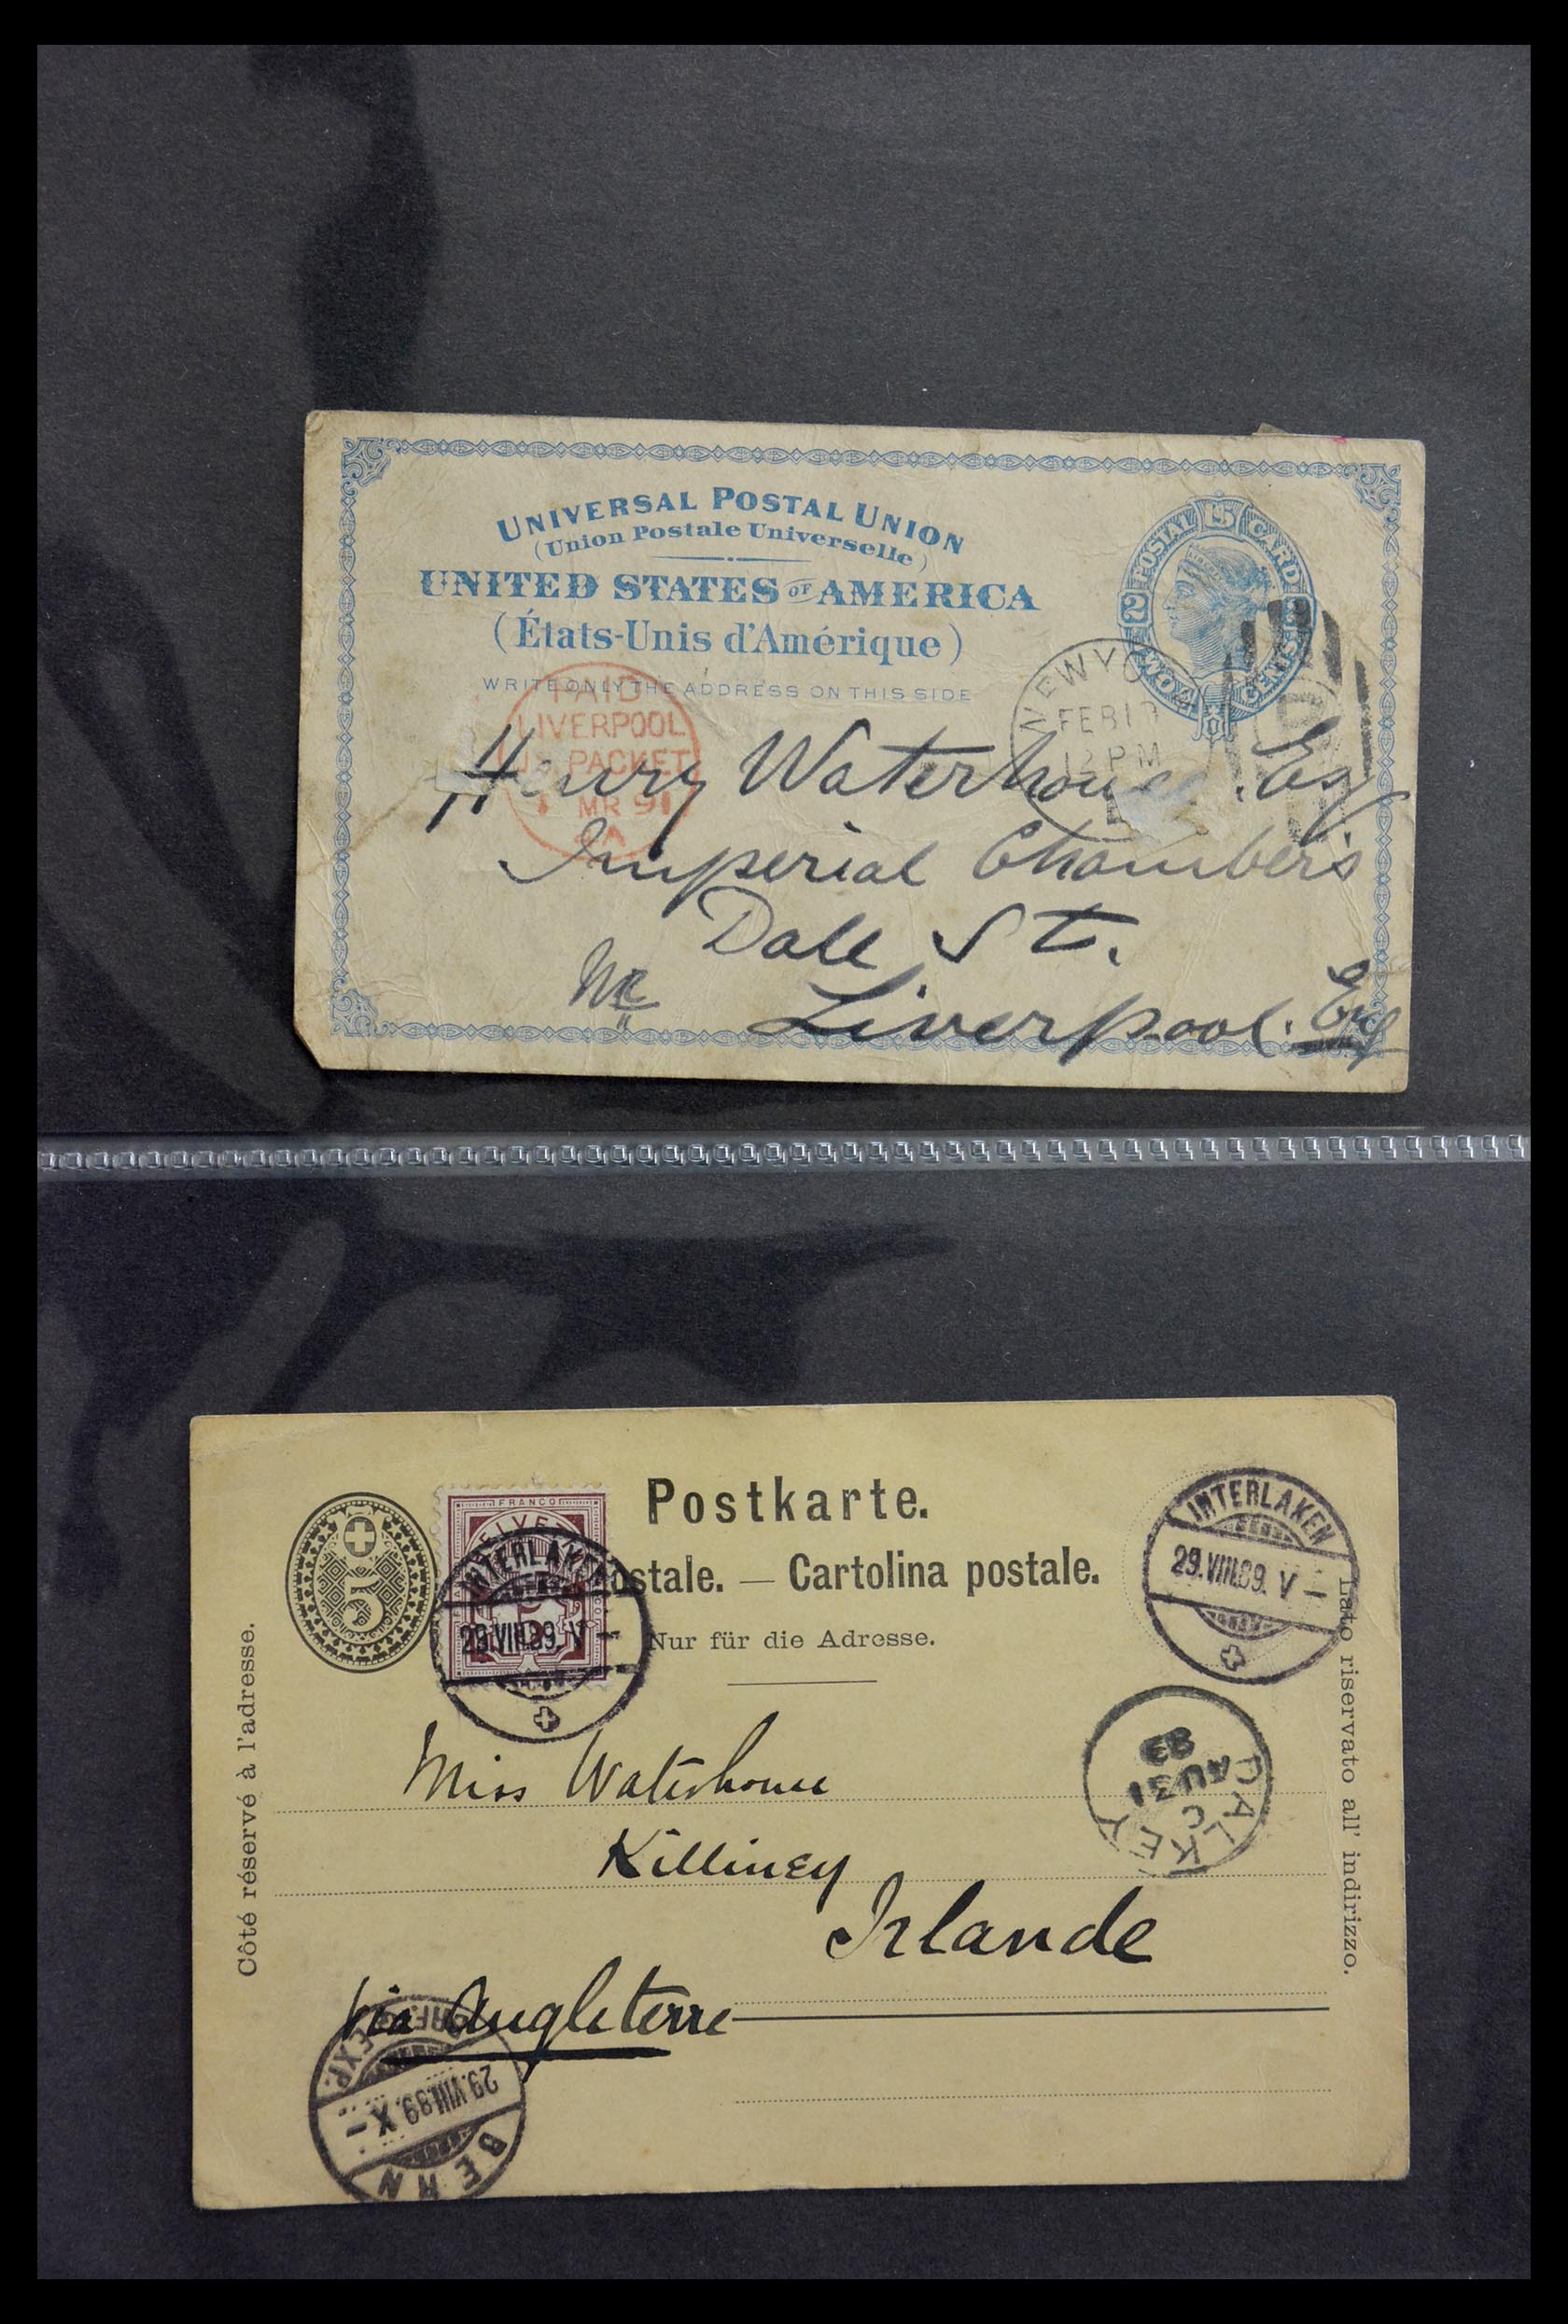 UNIVERSAL POSTAL UNION
(Union Postale Universelle)
UNITED STATES OF AMERICA
(États-Unis d'Amérique)
WRITE ONLY THE ADDRESS ON THIS SIDE
2 POSTAL CARD
TWO CENTS
NEW YO
FEB 1
12 PM
PAID
LIVERPOOL
PACKET
MR 91
A
Henry Waterhouse. Esq
Imperial Chambers
Dale St.
Liverpool. Eng
5
FRANCO
HELVE
Postkarte.
ostale. — Cartolina postale.
Nur für die Adresse.
INTERLAKEN
29.VIII.89. V –
INTERLAKEN
29.VIII.89. V –
Côté réservé à l'adresse.
Lato riservato all' indirizzo.
DALKEY
C
AU 31
89
Miss Waterhouse
Killiney
Irlande
via Angleterre
BERN
29.VIII.89. X –
BRF. EXP.